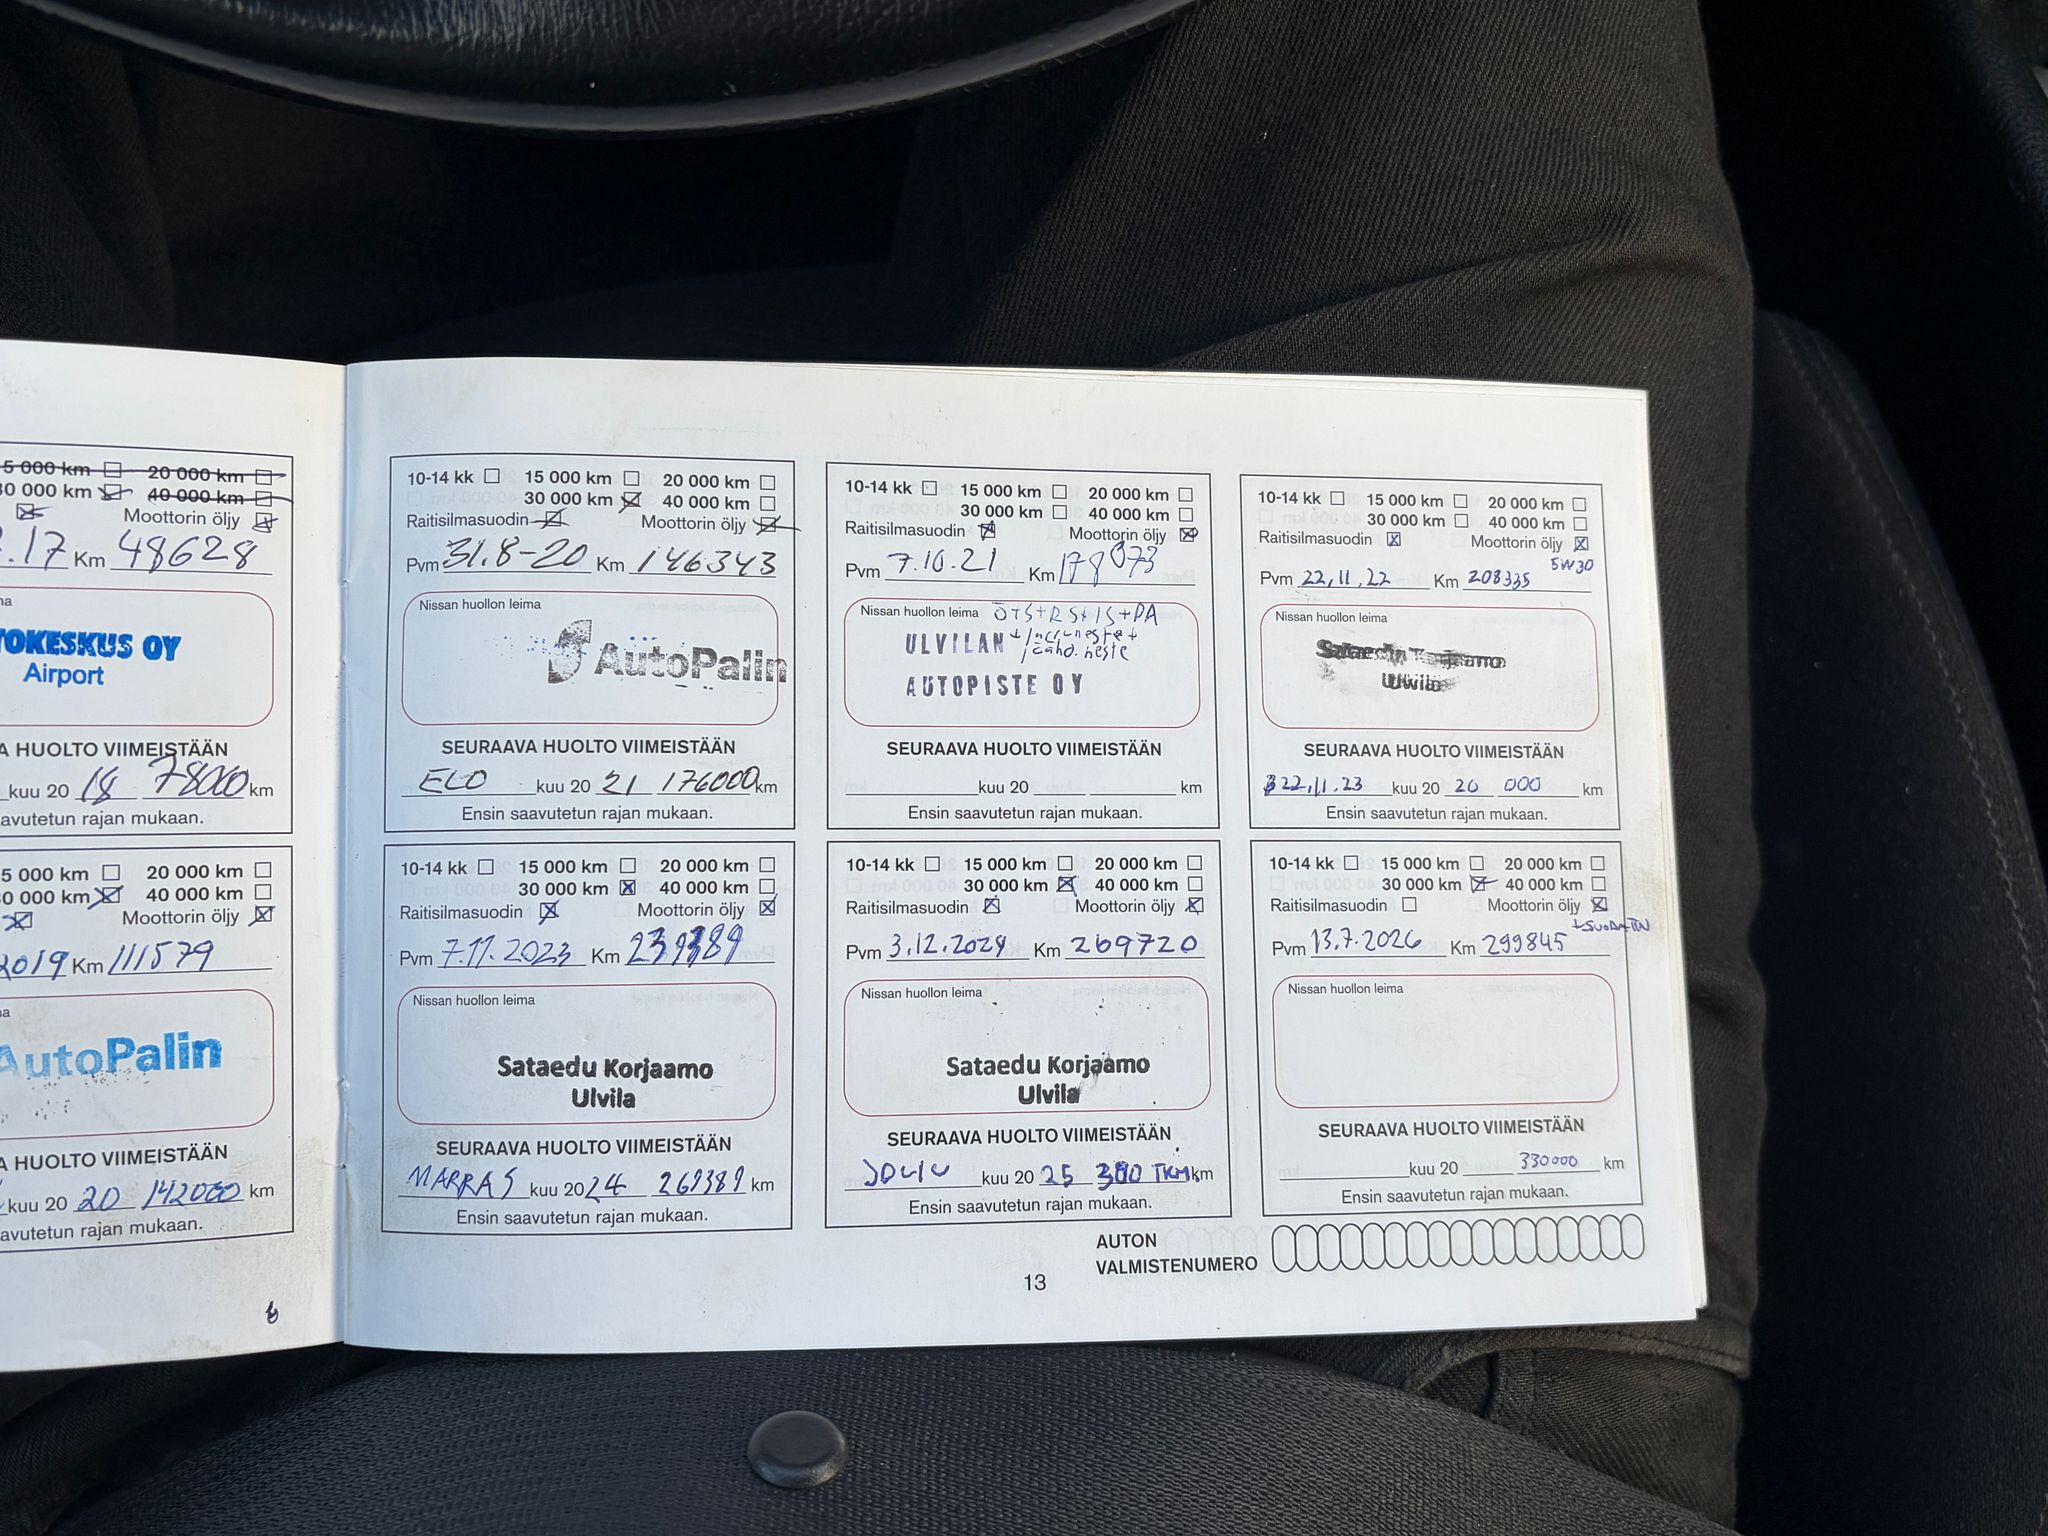 5 000 km 20 000 km
30 000 km 40 000 km
Moottorin öljy
.17 Km 48628
TOKESKUS OY
Airport
A HUOLTO VIIMEISTÄÄN
kuu 20 18 78000 km
avutetun rajan mukaan.
5 000 km 20 000 km
30 000 km 40 000 km
Moottorin öljy
2019 Km 111579
AutoPalin
A HUOLTO VIIMEISTÄÄN
kuu 20 20 142000 km
avutetun rajan mukaan.
10-14 kk 15 000 km 20 000 km
30 000 km 40 000 km
Raitisilmasuodin Moottorin öljy
Pvm 31.8-20 Km 146343
Nissan huollon leima
AutoPalin
SEURAAVA HUOLTO VIIMEISTÄÄN
ELO kuu 20 21 176000 km
Ensin saavutetun rajan mukaan.
10-14 kk 15 000 km 20 000 km
30 000 km 40 000 km
Raitisilmasuodin Moottorin öljy
Pvm 7.10.21 Km 178073
Nissan huollon leima ÖTS+RS+IS+PA
ULVILAN
AUTOPISTE OY
SEURAAVA HUOLTO VIIMEISTÄÄN
kuu 20 km
Ensin saavutetun rajan mukaan.
10-14 kk 15 000 km 20 000 km
30 000 km 40 000 km
Raitisilmasuodin Moottorin öljy
5W30
Pvm 22.11.22 Km 208335
Nissan huollon leima
Sataedu Korjaamo
Ulvila
SEURAAVA HUOLTO VIIMEISTÄÄN
22.11.23 kuu 20 20 000 km
Ensin saavutetun rajan mukaan.
10-14 kk 15 000 km 20 000 km
30 000 km 40 000 km
Raitisilmasuodin Moottorin öljy
Pvm 7.11.2023 Km 239389
Nissan huollon leima
Sataedu Korjaamo
Ulvila
SEURAAVA HUOLTO VIIMEISTÄÄN
MARRAS kuu 20 24 269389 km
Ensin saavutetun rajan mukaan.
10-14 kk 15 000 km 20 000 km
30 000 km 40 000 km
Raitisilmasuodin Moottorin öljy
Pvm 3.12.2024 Km 269720
Nissan huollon leima
Sataedu Korjaamo
Ulvila
SEURAAVA HUOLTO VIIMEISTÄÄN
JOULU kuu 20 25 300 TKM km
Ensin saavutetun rajan mukaan.
10-14 kk 15 000 km 20 000 km
30 000 km 40 000 km
Raitisilmasuodin Moottorin öljy
+SUODATIN
Pvm 13.7.2026 Km 299845
Nissan huollon leima
SEURAAVA HUOLTO VIIMEISTÄÄN
kuu 20 330000 km
Ensin saavutetun rajan mukaan.
AUTON
VALMISTENUMERO
13